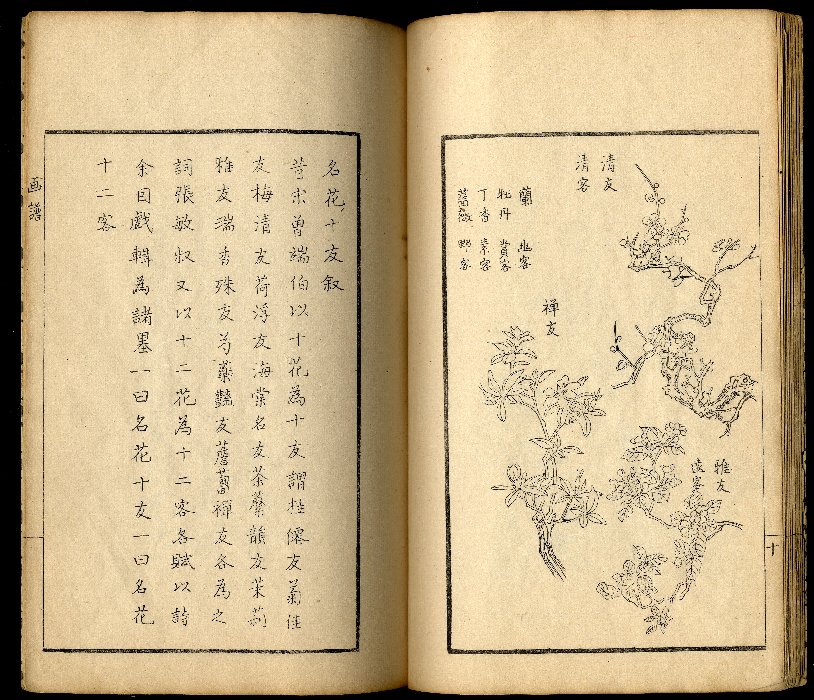 清友
清客
蘭 幽客
牡丹 貴客
丁香 素客
薔薇 野客
禪友
雅友
遠客
十
名花十友叙
昔宋曾端伯以十花為十友謂桂僊友菊佳
友梅清友荷浮友海棠名友荼蘼韻友茉莉
雅友瑞香殊友芍藥豔友薝蔔禪友各為之
詞張敏叔又以十二花為十二客各賦以詩
余因戲輯為諸墨一曰名花十友一曰名花
十二客
画譜